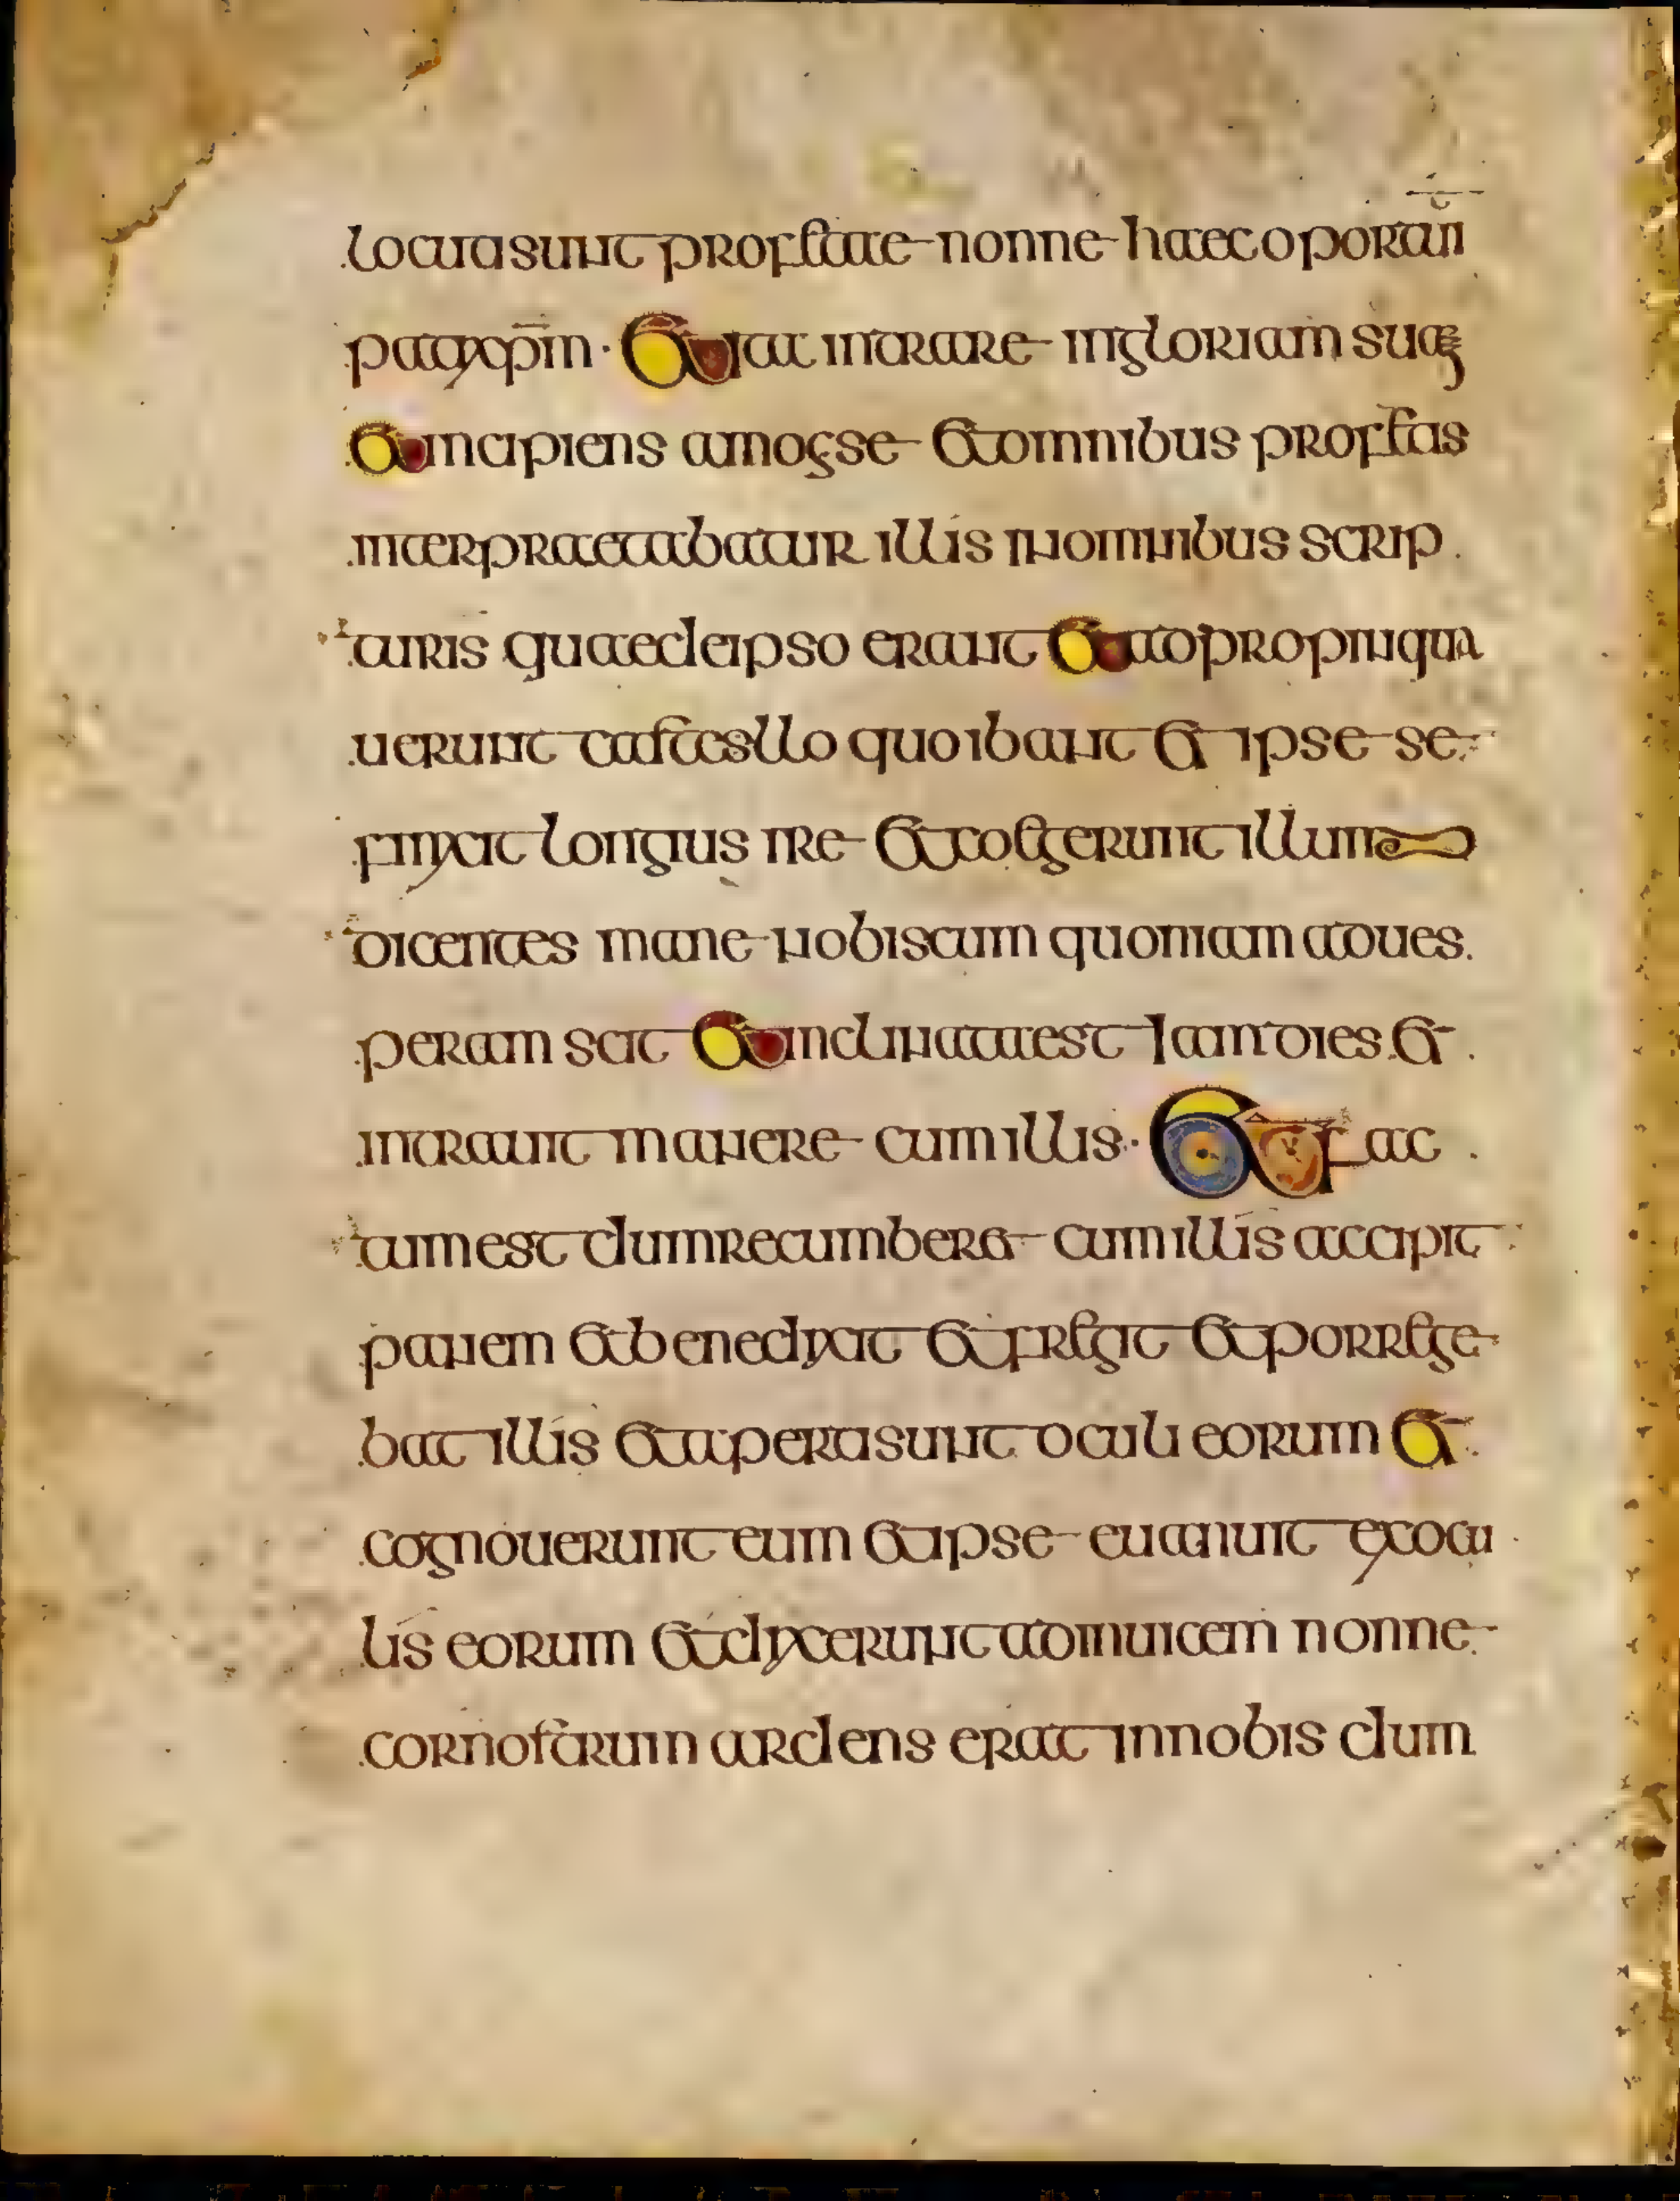 locuta sunt profetae nonne haec oportuit
pati xp̄m · et ita intrare in gloriam suam
et incipiens a mose et omnibus profetas
interpraetabatur illis in omnibus scrip
turis quae de ipso erant et adpropinqua
uerunt castello quo ibant et ipse se
finxit longius ire et coegerunt illum
dicentes mane nobiscum quoniam adues
peram scit et inclinata est iam dies et
intrauit manere cum illis · et fac
tum est dum recumberet cum illis accipit
panem et benedixit et fregit et porrege
bat illis et aperti sunt oculi eorum et
cognouerunt eum et ipse euanuit ex ocu
lis eorum et dixerunt ad inuicem nonne
cor nostrum ardens erat in nobis dum